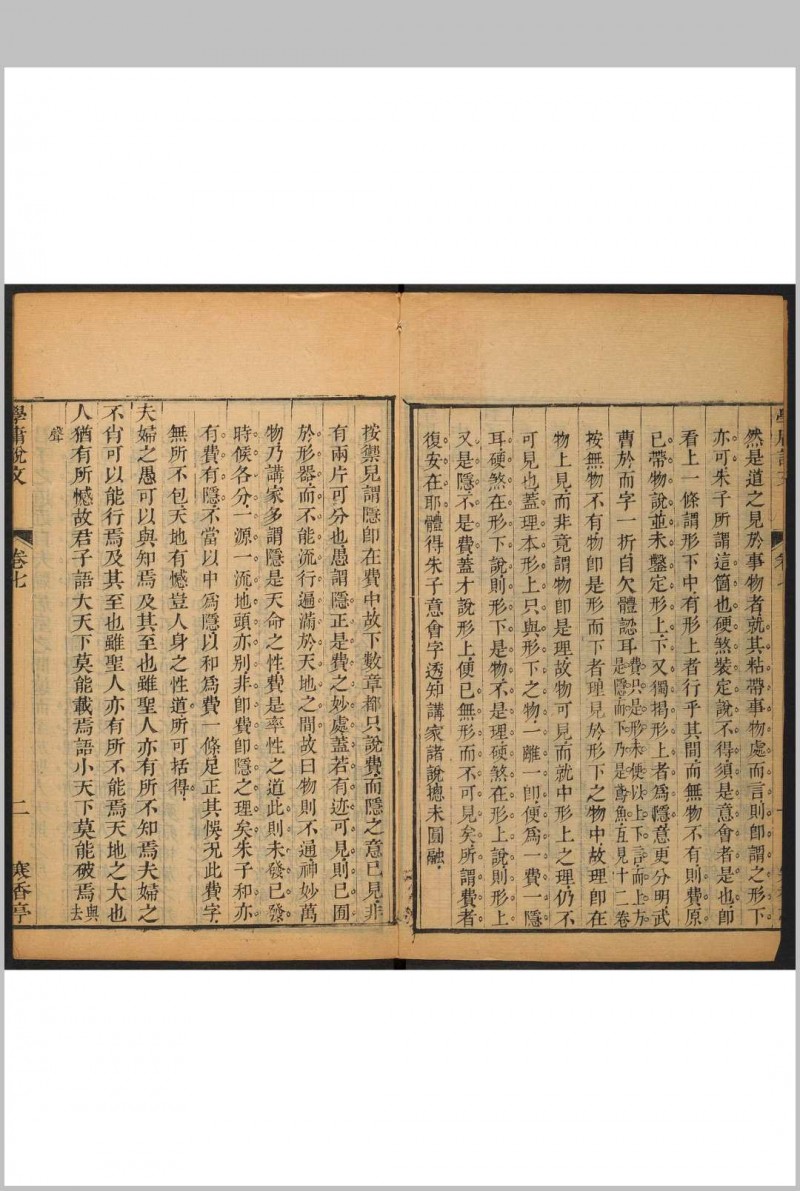 然是道之見於事物者就其粘帶事物處而言則卽謂之形下
亦可朱子所謂這箇也硬煞裝定說不得須是意會者是也卽
看上一條謂形下中有形上者行乎其間而無物不有則費原
已帶物說並未鑿定形上下又獨揭形上者爲隱意更分明武
曹於而字一折自欠體認耳費只是形未便以上下言而上方是隱而下乃是鳶魚互見十二卷
按無物不有物卽是形而下者理見於形下之物中故理卽在
物上見而非竟謂物卽是理故物可見而就中形上之理仍不
可見也蓋理本形上只與形下之物一離一卽便爲一費一隱
耳硬煞在形下說則形下是物不是理硬煞在形上說則形上
又是隱不是費蓋才說形上便已無形而不可見矣所謂費者
復安在耶體得朱子意會字透知講家諸說摠未圓融
按禦兒謂隱卽在費中故下數章都只說費而隱之意已見非
有兩片可分也愚謂隱正是費之妙處蓋若有迹可見則已囿
於形器而不能流行遍滿於天地之間故曰物則不通神妙萬
物乃講家多謂隱是天命之性費是率性之道此則未發已發
時候各分一源一流地頭亦別非卽費卽隱之理矣朱子和亦
有費有隱不當以中爲隱以和爲費一條足正其悞况此費字
無所不包天地有憾豈人身之性道所可括得
夫婦之愚可以與知焉及其至也雖聖人亦有所不知焉夫婦之
不肖可以能行焉及其至也雖聖人亦有所不能焉天地之大也
人猶有所憾故君子語大天下莫能載焉語小天下莫能破焉與去
聲
學庸說文 卷七 二 寒香亭